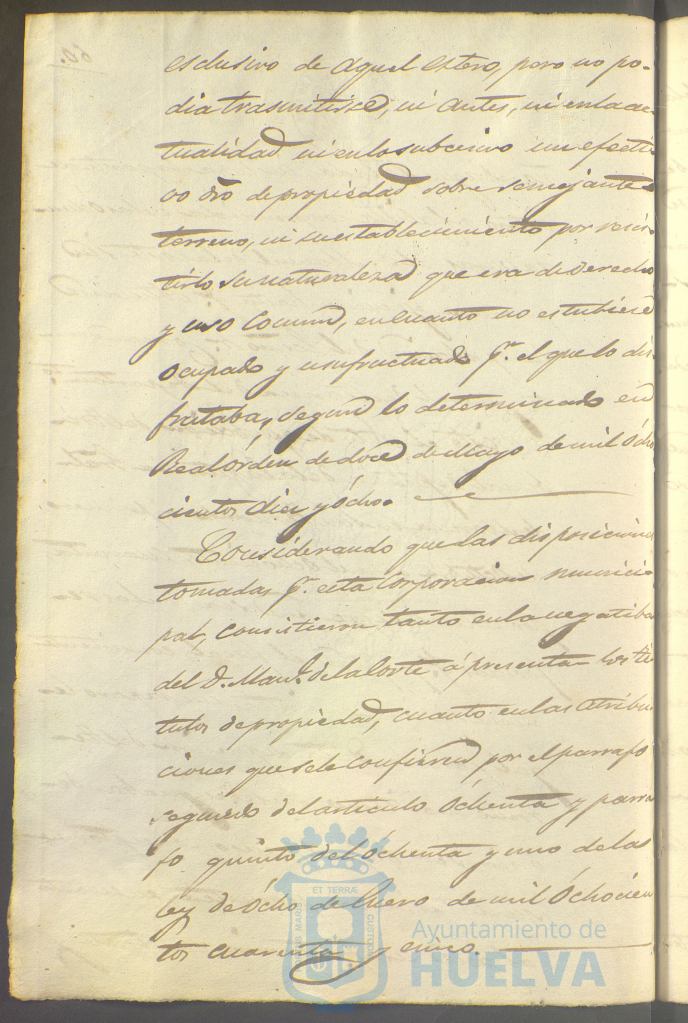 esclusivo de aquel estero, pero no po-
dia trasmitirse, ni antes, ni en la ac-
tualidad ni en lo subcesivo un efecti-
vo dro de propiedad sobre semejante
terreno, ni su establecimiento por resis-
tirlo su naturaleza que era de derecho
y uso comun, en cuanto no estubiese
ocupado y usufructuado pr. el que lo dis-
frutaba, segun lo determinado en
Real órden de doce de Mayo de mil ócho
cientos diez y ócho.
Considerando que las disposiciones
tomadas pr. esta Corporacion munici-
pal, consistieron tanto en la negatiba
del D. Manl. de la Corte á presentar los tí
tulos de propiedad, cuanto en las atribu
ciones que se le confieren por el parrafo
segundo del artículo óchenta y parra
fo quinto del óchenta y uno de la
ley de ócho de Enero de mil óchocien
tos cuarenta y cinco.
ET TERRÆ
Ayuntamiento de
HUELVA